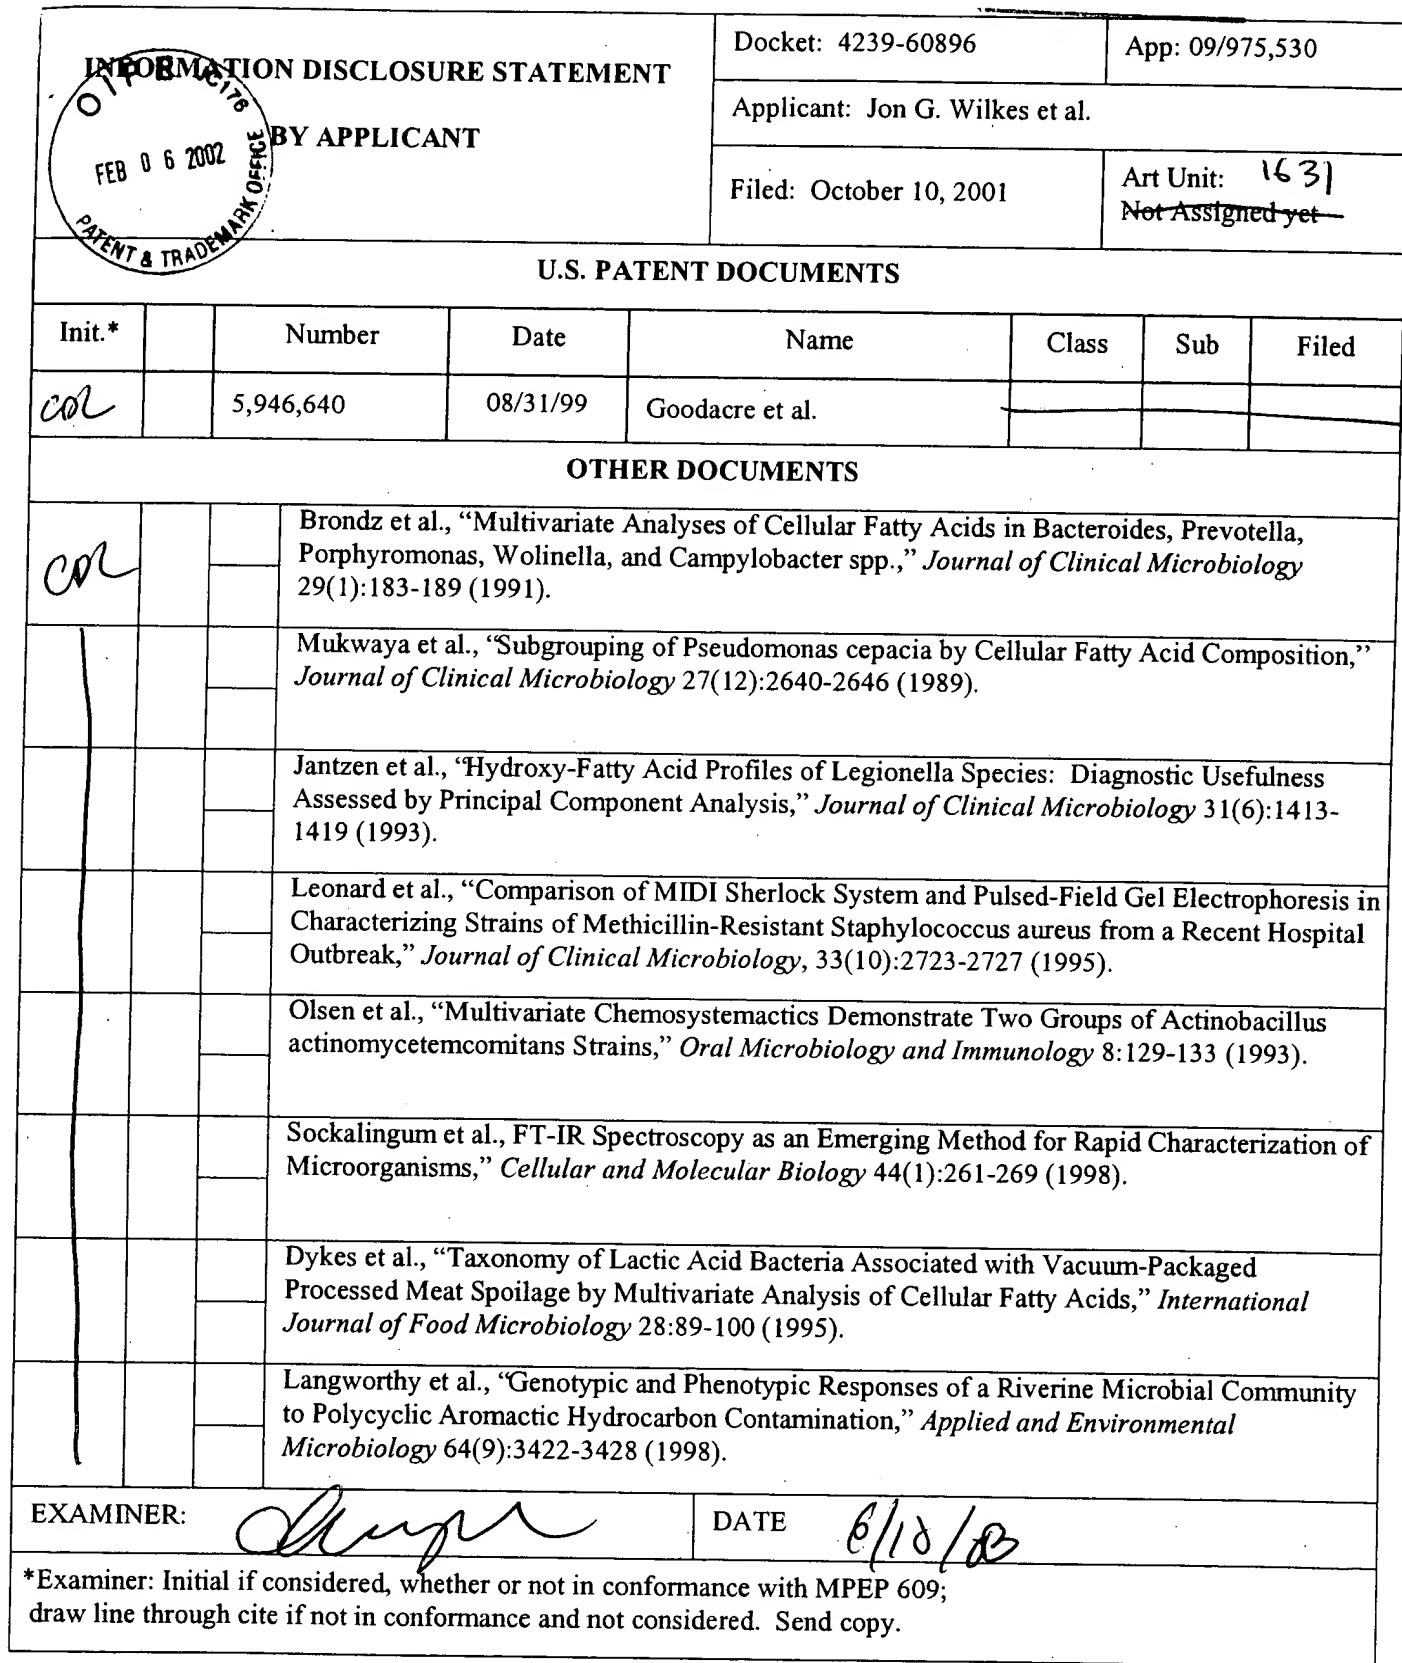 INFORMATION DISCLOSURE STATEMENT
BY APPLICANT
OIPE JC176
FEB 06 2002
PATENT & TRADEMARK OFFICE
Docket: 4239-60896
App: 09/975,530
Applicant: Jon G. Wilkes et al.
Filed: October 10, 2001
Art Unit: 1631
Not Assigned yet
U.S. PATENT DOCUMENTS
Init.* Number Date Name Class Sub Filed
5,946,640 08/31/99 Goodacre et al.
OTHER DOCUMENTS
Brondz et al., “Multivariate Analyses of Cellular Fatty Acids in Bacteroides, Prevotella,
Porphyromonas, Wolinella, and Campylobacter spp.,” Journal of Clinical Microbiology
29(1):183-189 (1991).
Mukwaya et al., “Subgrouping of Pseudomonas cepacia by Cellular Fatty Acid Composition,”
Journal of Clinical Microbiology 27(12):2640-2646 (1989).
Jantzen et al., “Hydroxy-Fatty Acid Profiles of Legionella Species: Diagnostic Usefulness
Assessed by Principal Component Analysis,” Journal of Clinical Microbiology 31(6):1413-
1419 (1993).
Leonard et al., “Comparison of MIDI Sherlock System and Pulsed-Field Gel Electrophoresis in
Characterizing Strains of Methicillin-Resistant Staphylococcus aureus from a Recent Hospital
Outbreak,” Journal of Clinical Microbiology, 33(10):2723-2727 (1995).
Olsen et al., “Multivariate Chemosystemactics Demonstrate Two Groups of Actinobacillus
actinomycetemcomitans Strains,” Oral Microbiology and Immunology 8:129-133 (1993).
Sockalingum et al., FT-IR Spectroscopy as an Emerging Method for Rapid Characterization of
Microorganisms,” Cellular and Molecular Biology 44(1):261-269 (1998).
Dykes et al., “Taxonomy of Lactic Acid Bacteria Associated with Vacuum-Packaged
Processed Meat Spoilage by Multivariate Analysis of Cellular Fatty Acids,” International
Journal of Food Microbiology 28:89-100 (1995).
Langworthy et al., “Genotypic and Phenotypic Responses of a Riverine Microbial Community
to Polycyclic Aromactic Hydrocarbon Contamination,” Applied and Environmental
Microbiology 64(9):3422-3428 (1998).
EXAMINER:
DATE 6/10/03
*Examiner: Initial if considered, whether or not in conformance with MPEP 609;
draw line through cite if not in conformance and not considered. Send copy.